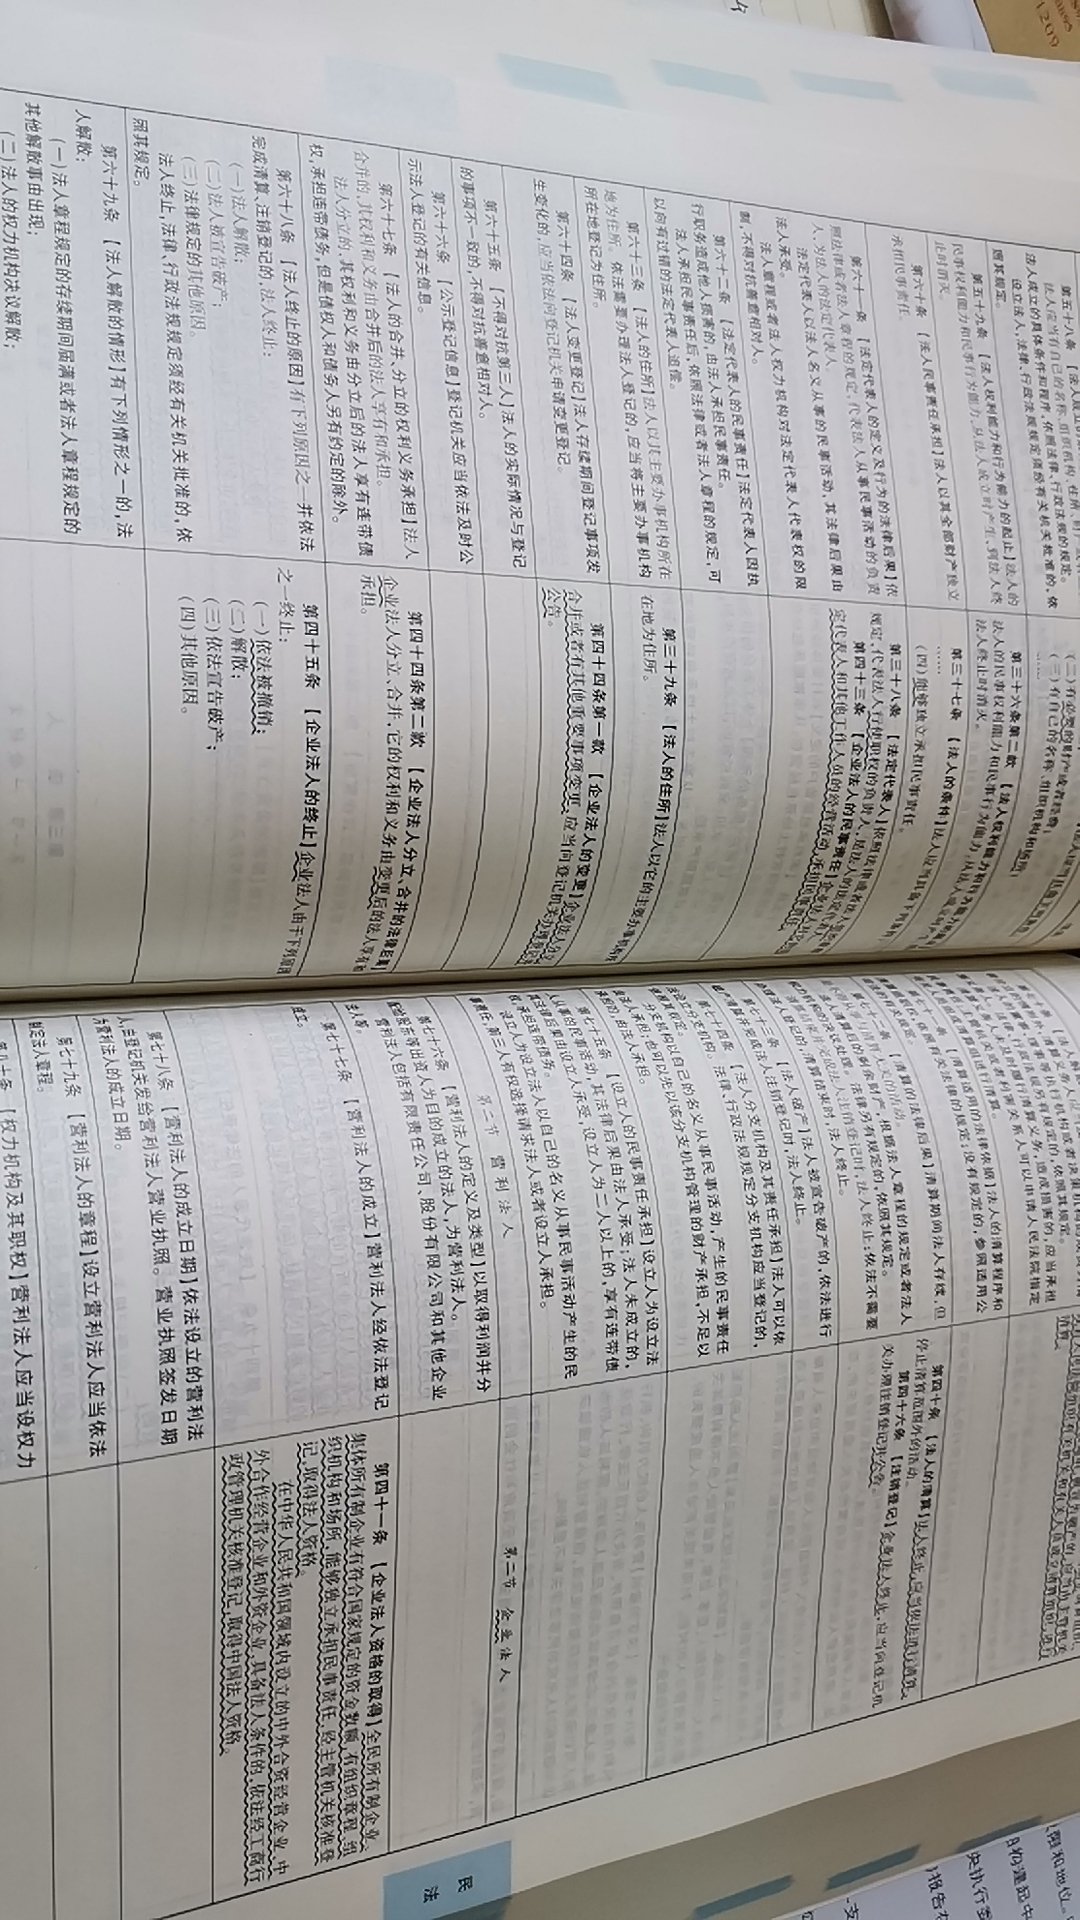 法人应当有自己的名称、组织机构、住所、
法人成立的具体条件和程序,依照法律、行政法规的规定。
设立法人,法律、行政法规规定须经有关机关批准的,依
照其规定。
第五十九条 【法人权利能力和行为能力的起止】法人的
民事权利能力和民事行为能力,从法人成立时产生,到法人终
止时消灭。
第六十条 【法人民事责任承担】法人以其全部财产独立
承担民事责任。
第六十一条 【法定代表人的定义及行为的法律后果】依
照法律或者法人章程的规定,代表法人从事民事活动的负责
人,为法人的法定代表人。
法定代表人以法人名义从事的民事活动,其法律后果由
法人承受。
法人章程或者法人权力机构对法定代表人代表权的限
制,不得对抗善意相对人。
第六十二条 【法定代表人的民事责任】法定代表人因执
行职务造成他人损害的,由法人承担民事责任。
法人承担民事责任后,依照法律或者法人章程的规定,可
以向有过错的法定代表人追偿。
第六十三条 【法人的住所】法人以其主要办事机构所在
地为住所。依法需要办理法人登记的,应当将主要办事机构
所在地登记为住所。
第六十四条 【法人变更登记】法人存续期间登记事项发
生变化的,应当依法向登记机关申请变更登记。
第六十五条 【不得对抗第三人】法人的实际情况与登记
的事项不一致的,不得对抗善意相对人。
第六十六条 【公示登记信息】登记机关应当依法及时公
示法人登记的有关信息。
第六十七条 【法人的合并、分立的权利义务承担】法人
合并的,其权利和义务由合并后的法人享有和承担。
法人分立的,其权利和义务由分立后的法人享有连带债
权,承担连带债务,但是债权人和债务人另有约定的除外。
第六十八条 【法人终止的原因】有下列原因之一并依法
完成清算、注销登记的,法人终止:
(一)法人解散;
(二)法人被宣告破产;
(三)法律规定的其他原因。
法人终止,法律、行政法规规定须经有关机关批准的,依
照其规定。
第六十九条 【法人解散的情形】有下列情形之一的,法
人解散:
(一)法人章程规定的存续期间届满或者法人章程规定的
其他解散事由出现;
(二)法人的权力机构决议解散;
(二)有必要的财产或者经费;
(三)有自己的名称、组织机构和场所;
第三十六条第二款 【法人权利能力和行为能力
法人的民事权利能力和民事行为能力,从法人成立时产生,到
法人终止时消灭。
第三十七条 【法人的条件】法人应当具备下列条件:
……
(四)能够独立承担民事责任。
第三十八条 【法定代表人】依照法律或者法人
规定,代表法人行使职权的负责人,是法人的法定代表人。
第四十三条 【企业法人的民事责任】企业法人对它的法
定代表人和其他工作人员的经营活动,承担民事责任。
第三十九条 【法人的住所】法人以它的主要办事机构所
在地为住所。
第四十四条第一款 【企业法人的变更】企业法人分立、
合并或者有其他重要事项变更,应当向登记机关办理登记并
公告。
第四十四条第二款 【企业法人分立、合并的法律后果】
企业法人分立、合并,它的权利和义务由变更后的法人享有和
承担。
第四十五条 【企业法人的终止】企业法人由于下列原因
之一终止:
(一)依法被撤销;
(二)解散;
(三)依法宣告破产;
(四)其他原因。
【清算的法律后果】清算期间法人存续,但
法人清算后的剩余财产,根据法人章程的规定或者法人
法律另有规定的,依照其规定。
清算结束并完成法人注销登记时,法人终止;依法不需要
办理法人登记的,清算结束时,法人终止。
第七十三条 【法人破产】法人被宣告破产的,依法进行
破产清算并完成法人注销登记时,法人终止。
第七十四条 【法人分支机构及其责任承担】法人可以依
法设立分支机构。法律、行政法规规定分支机构应当登记的,
依照其规定。
分支机构以自己的名义从事民事活动,产生的民事责任
由法人承担;也可以先以该分支机构管理的财产承担,不足以
承担的,由法人承担。
第七十五条 【设立人的民事责任承担】设立人为设立法
人从事的民事活动,其法律后果由法人承受;法人未成立的,
其法律后果由设立人承受,设立人为二人以上的,享有连带债
权,承担连带债务。
设立人为设立法人以自己的名义从事民事活动产生的民
事责任,第三人有权选择请求法人或者设立人承担。
第二节 营利法人
第七十六条 【营利法人的定义及类型】以取得利润并分
配给股东等出资人为目的成立的法人,为营利法人。
营利法人包括有限责任公司、股份有限公司和其他企业
法人等。
第七十七条 【营利法人的成立】营利法人经依法登记
成立。
第七十八条 【营利法人的成立日期】依法设立的营利法
人,由登记机关发给营利法人营业执照。营业执照签发日期
为营利法人的成立日期。
第七十九条 【营利法人的章程】设立营利法人应当依法
制定法人章程。
第八十条 【权力机构及其职权】营利法人应当设权力
第四十条 【法人的清算】法人终止,应当依法进行清算,
停止清算范围外的活动。
第四十六条 【注销登记】企业法人终止,应当向登记机
关办理注销登记并公告。
第二节 企业法人
第四十一条 【企业法人资格的取得】全民所有制企业、
集体所有制企业有符合国家规定的资金数额,有组织章程、组
织机构和场所,能够独立承担民事责任,经主管机关核准登
记,取得法人资格。
在中华人民共和国领域内设立的中外合资经营企业、中
外合作经营企业和外资企业,具备法人条件的,依法经工商行
政管理机关核准登记,取得中国法人资格。
民法